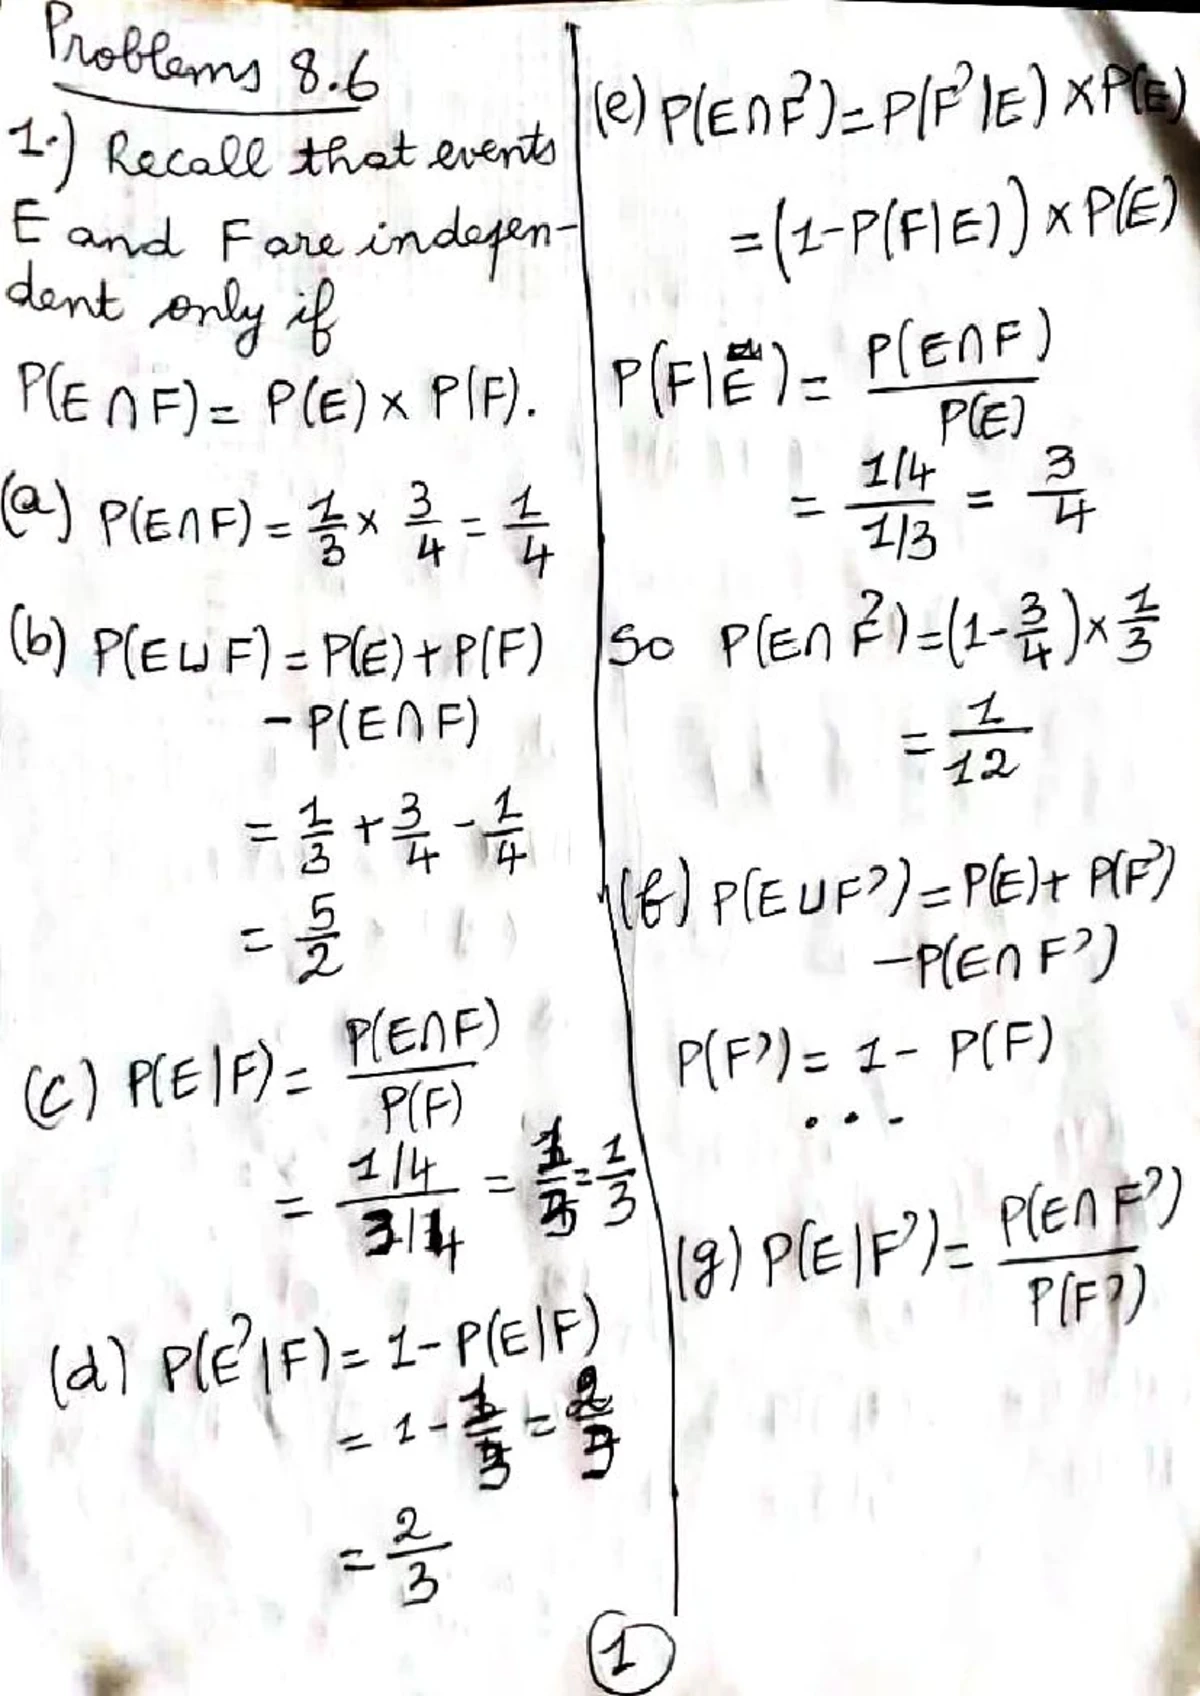 Problems 8.6
1.) Recall that events
E and F are indepen-
dent only if
P(E ∩ F) = P(E) × P(F).
(a) P(E∩F) = 1/3 × 3/4 = 1/4
(b) P(E ∪ F) = P(E) + P(F)
- P(E ∩ F)
= 1/3 + 3/4 - 1/4
= 5/2
(c) P(E|F) = P(E∩F)/P(F)
= (1/4)/(3/4) = 1/3 = 1/3
(d) P(E'|F) = 1 - P(E|F)
= 1 - 1/3 = 2/3
= 2/3
(e) P(E∩F') = P(F'|E) × P(E)
= (1-P(F|E)) × P(E)
P(F|E) = P(E∩F)/P(E)
= (1/4)/(1/3) = 3/4
So P(E∩F') = (1-3/4) × 1/3
= 1/12
(f) P(E∪F') = P(E) + P(F')
- P(E∩F')
P(F') = 1 - P(F)
...
(g) P(E|F') = P(E∩F')/P(F')
1